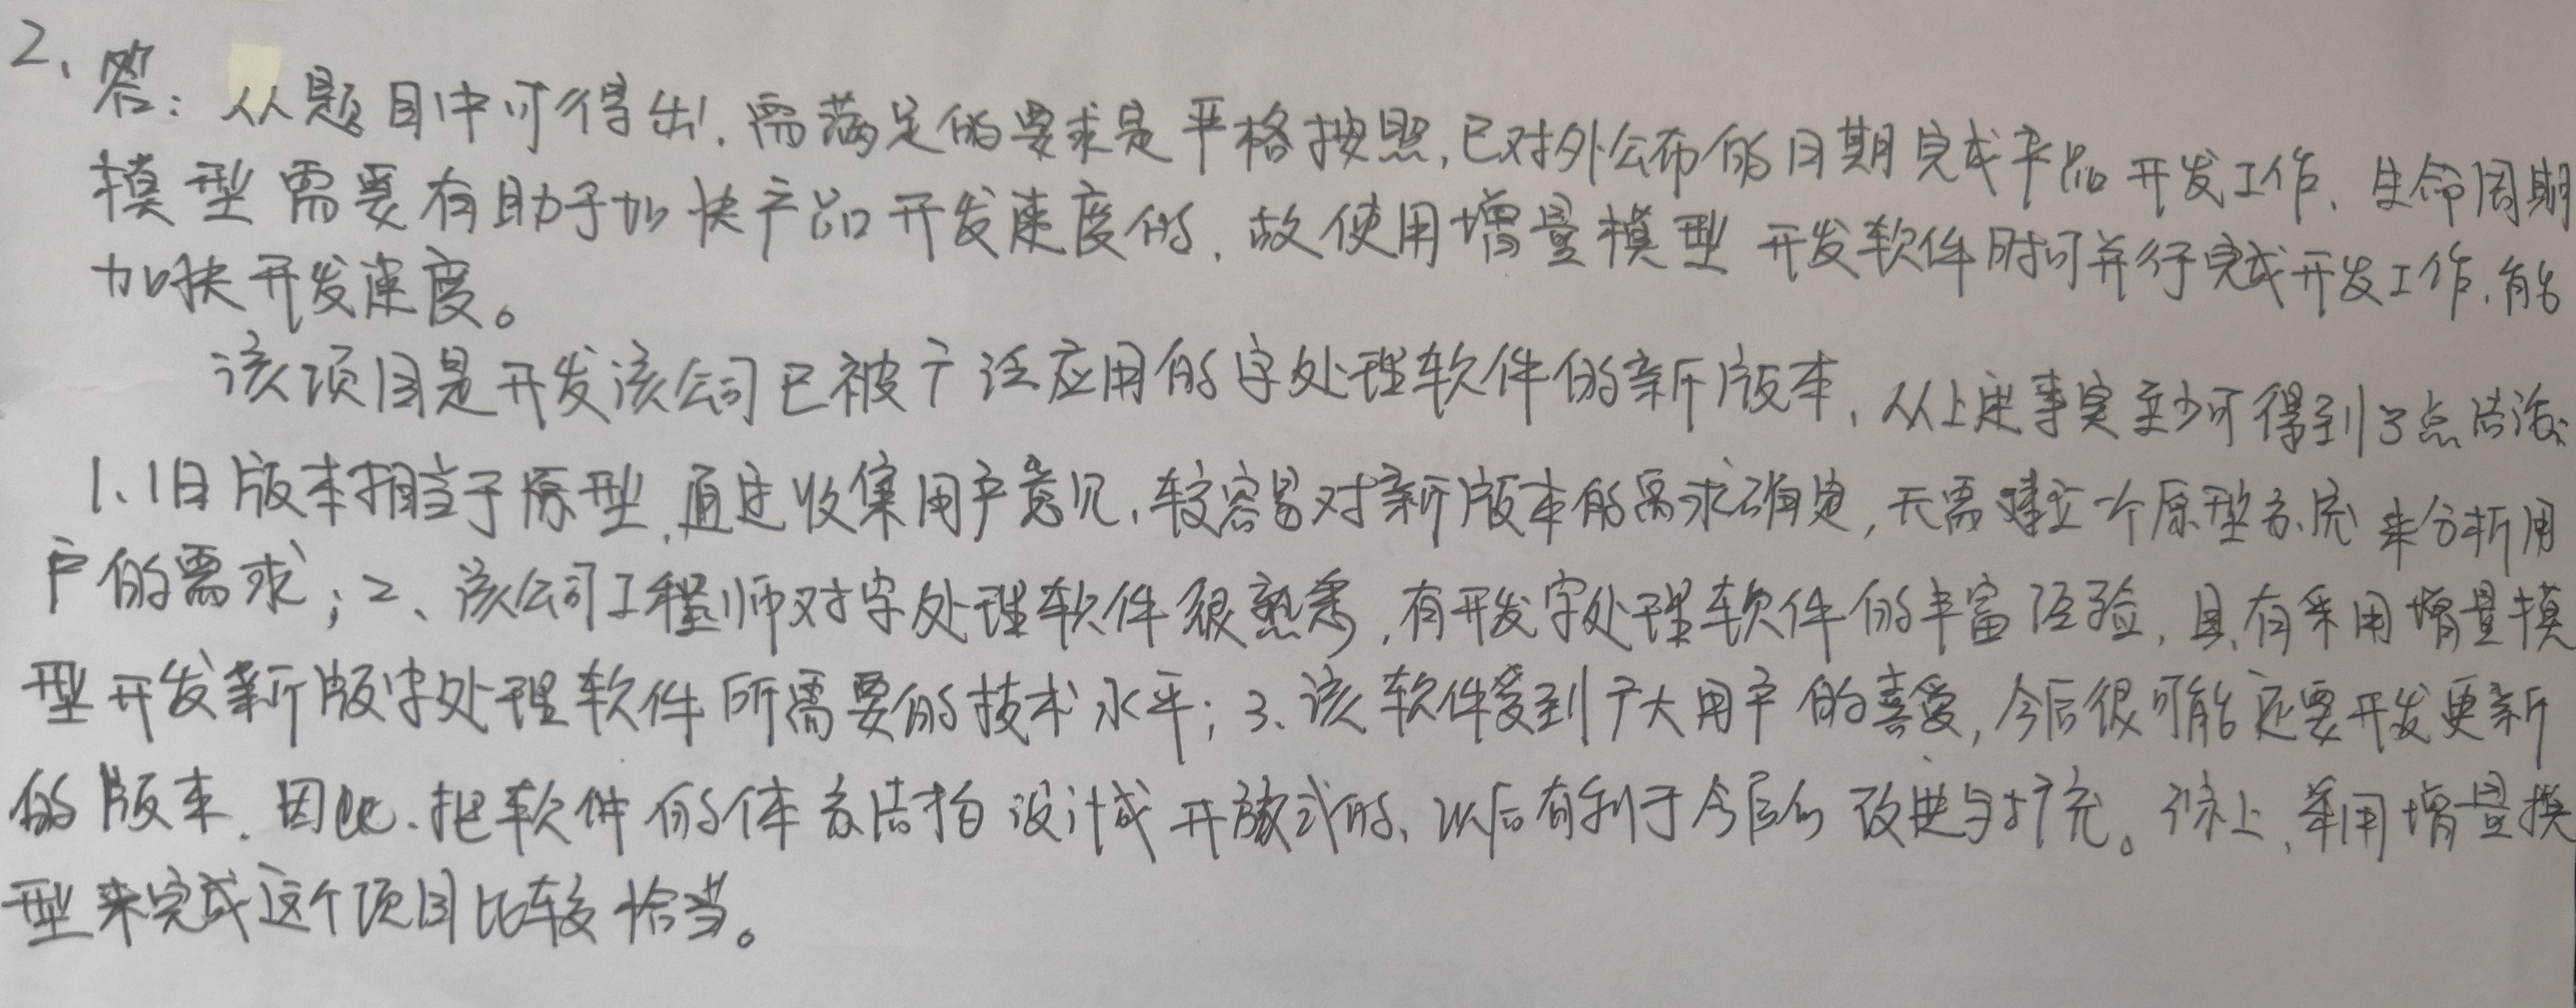 2、答：从题目中可得出，需满足的要求是严格按照，已对外公布的日期完成产品开发工作，生命周期
模型需要有助于加快产品开发速度的，故使用增量模型开发软件时可并行完成开发工作，能
加快开发速度。
该项目是开发该公司已被广泛应用的字处理软件的新版本，从上述事实至少可得到3点结论：
1、旧版本相当于原型，通过收集用户意见，较容易对新版本的需求确定，无需建立一个原型系统来分析用
户的需求；2、该公司工程师对字处理软件很熟悉，有开发字处理软件的丰富经验，具有采用增量模
型开发新版字处理软件所需要的技术水平；3、该软件受到广大用户的喜爱，今后很可能还要开发更新
的版本，因此，把软件的体系结构设计成开放式的，以后有利于今后的改进与扩充。综上，采用增量模
型来完成这个项目比较恰当。